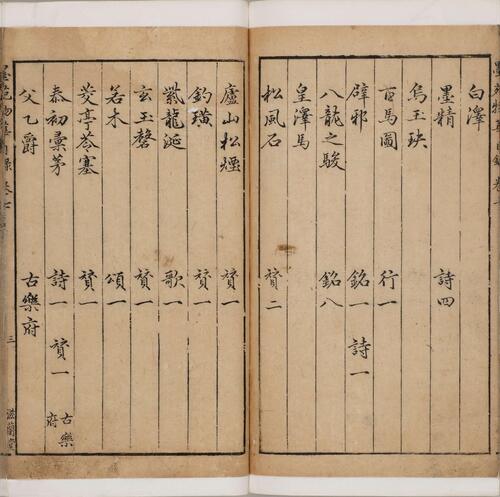 白澤
墨精 詩四
烏玉玦
百馬圖 行一
辟邪 銘一 詩一
八龍之駿 銘八
皇澤馬
松風石 贊二
廬山松煙 贊一
釣璜 贊一
紫龍涎 歌一
玄玉磬 贊一
若木 頌一
茭亭苓塞 贊一
泰初彙茅 詩一 贊一 古樂府
父乙爵 古樂府
三 滋蘭堂